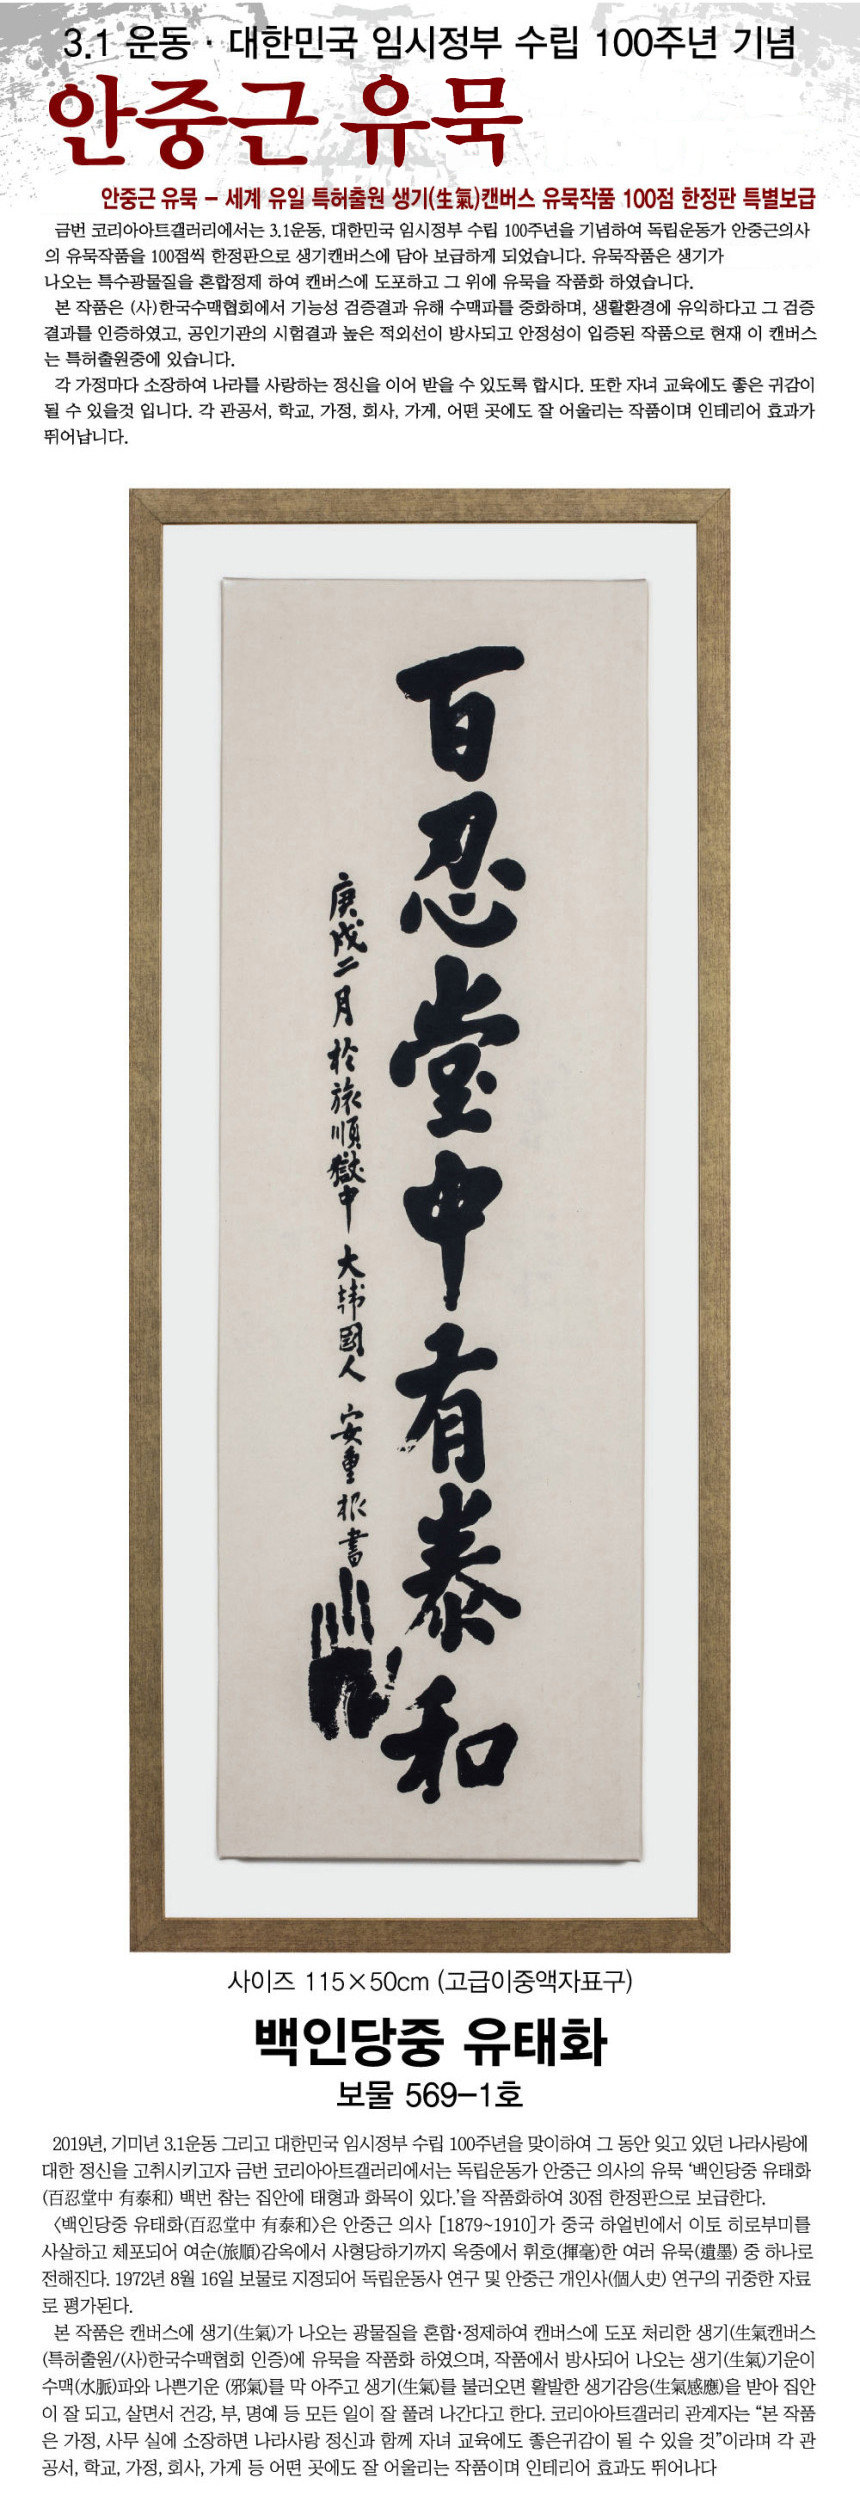 3.1 운동 · 대한민국 임시정부 수립 100주년 기념
안중근 유묵
안중근 유묵 – 세계 유일 특허출원 생기(生氣)캔버스 유묵작품 100점 한정판 특별보급
금번 코리아아트갤러리에서는 3.1운동, 대한민국 임시정부 수립 100주년을 기념하여 독립운동가 안중근의사
의 유묵작품을 100점씩 한정판으로 생기캔버스에 담아 보급하게 되었습니다. 유묵작품은 생기가
나오는 특수광물질을 혼합정제 하여 캔버스에 도포하고 그 위에 유묵을 작품화 하였습니다.
본 작품은 (사)한국수맥협회에서 기능성 검증결과 유해 수맥파를 중화하며, 생활환경에 유익하다고 그 검증
결과를 인증하였고, 공인기관의 시험결과 높은 적외선이 방사되고 안정성이 입증된 작품으로 현재 이 캔버스
는 특허출원중에 있습니다.
각 가정마다 소장하여 나라를 사랑하는 정신을 이어 받을 수 있도록 합시다. 또한 자녀 교육에도 좋은 귀감이
될 수 있을것 입니다. 각 관공서, 학교, 가정, 회사, 가게, 어떤 곳에도 잘 어울리는 작품이며 인테리어 효과가
뛰어납니다.
百忍堂中有泰和
庚戌二月 於旅順獄中 大韓國人 安重根書
사이즈 115×50cm (고급이중액자표구)
백인당중 유태화
보물 569-1호
2019년, 기미년 3.1운동 그리고 대한민국 임시정부 수립 100주년을 맞이하여 그 동안 잊고 있던 나라사랑에
대한 정신을 고취시키고자 금번 코리아아트갤러리에서는 독립운동가 안중근 의사의 유묵 ‘백인당중 유태화
(百忍堂中 有泰和) 백번 참는 집안에 태형과 화목이 있다.’을 작품화하여 30점 한정판으로 보급한다.
〈백인당중 유태화(百忍堂中 有泰和)〉은 안중근 의사 [1879~1910]가 중국 하얼빈에서 이토 히로부미를
사살하고 체포되어 여순(旅順)감옥에서 사형당하기까지 옥중에서 휘호(揮毫)한 여러 유묵(遺墨) 중 하나로
전해진다. 1972년 8월 16일 보물로 지정되어 독립운동사 연구 및 안중근 개인사(個人史) 연구의 귀중한 자료
로 평가된다.
본 작품은 캔버스에 생기(生氣)가 나오는 광물질을 혼합·정제하여 캔버스에 도포 처리한 생기(生氣캔버스
(특허출원/(사)한국수맥협회 인증)에 유묵을 작품화 하였으며, 작품에서 방사되어 나오는 생기(生氣)기운이
수맥(水脈)파와 나쁜기운 (邪氣)를 막 아주고 생기(生氣)를 불러오면 활발한 생기감응(生氣感應)을 받아 집안
이 잘 되고, 살면서 건강, 부, 명예 등 모든 일이 잘 풀려 나간다고 한다. 코리아아트갤러리 관계자는 “본 작품
은 가정, 사무 실에 소장하면 나라사랑 정신과 함께 자녀 교육에도 좋은귀감이 될 수 있을 것”이라며 각 관
공서, 학교, 가정, 회사, 가게 등 어떤 곳에도 잘 어울리는 작품이며 인테리어 효과도 뛰어나다